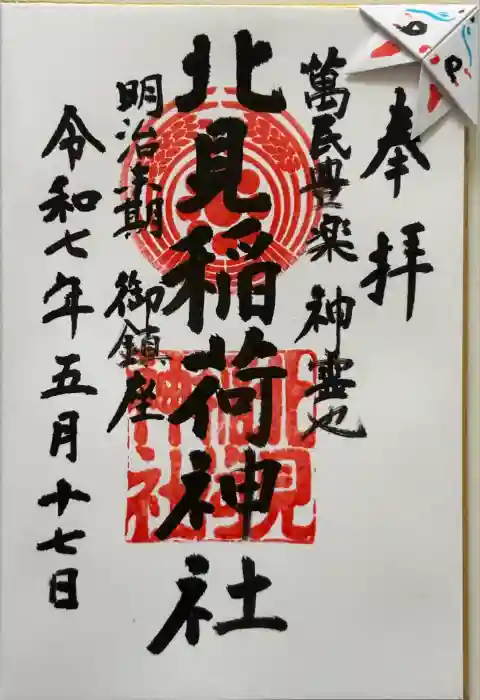 奉拝
萬民豊楽 神霊也
北見稲荷神社
明治末期 御鎮座
令和七年五月十七日
北見稲荷神社